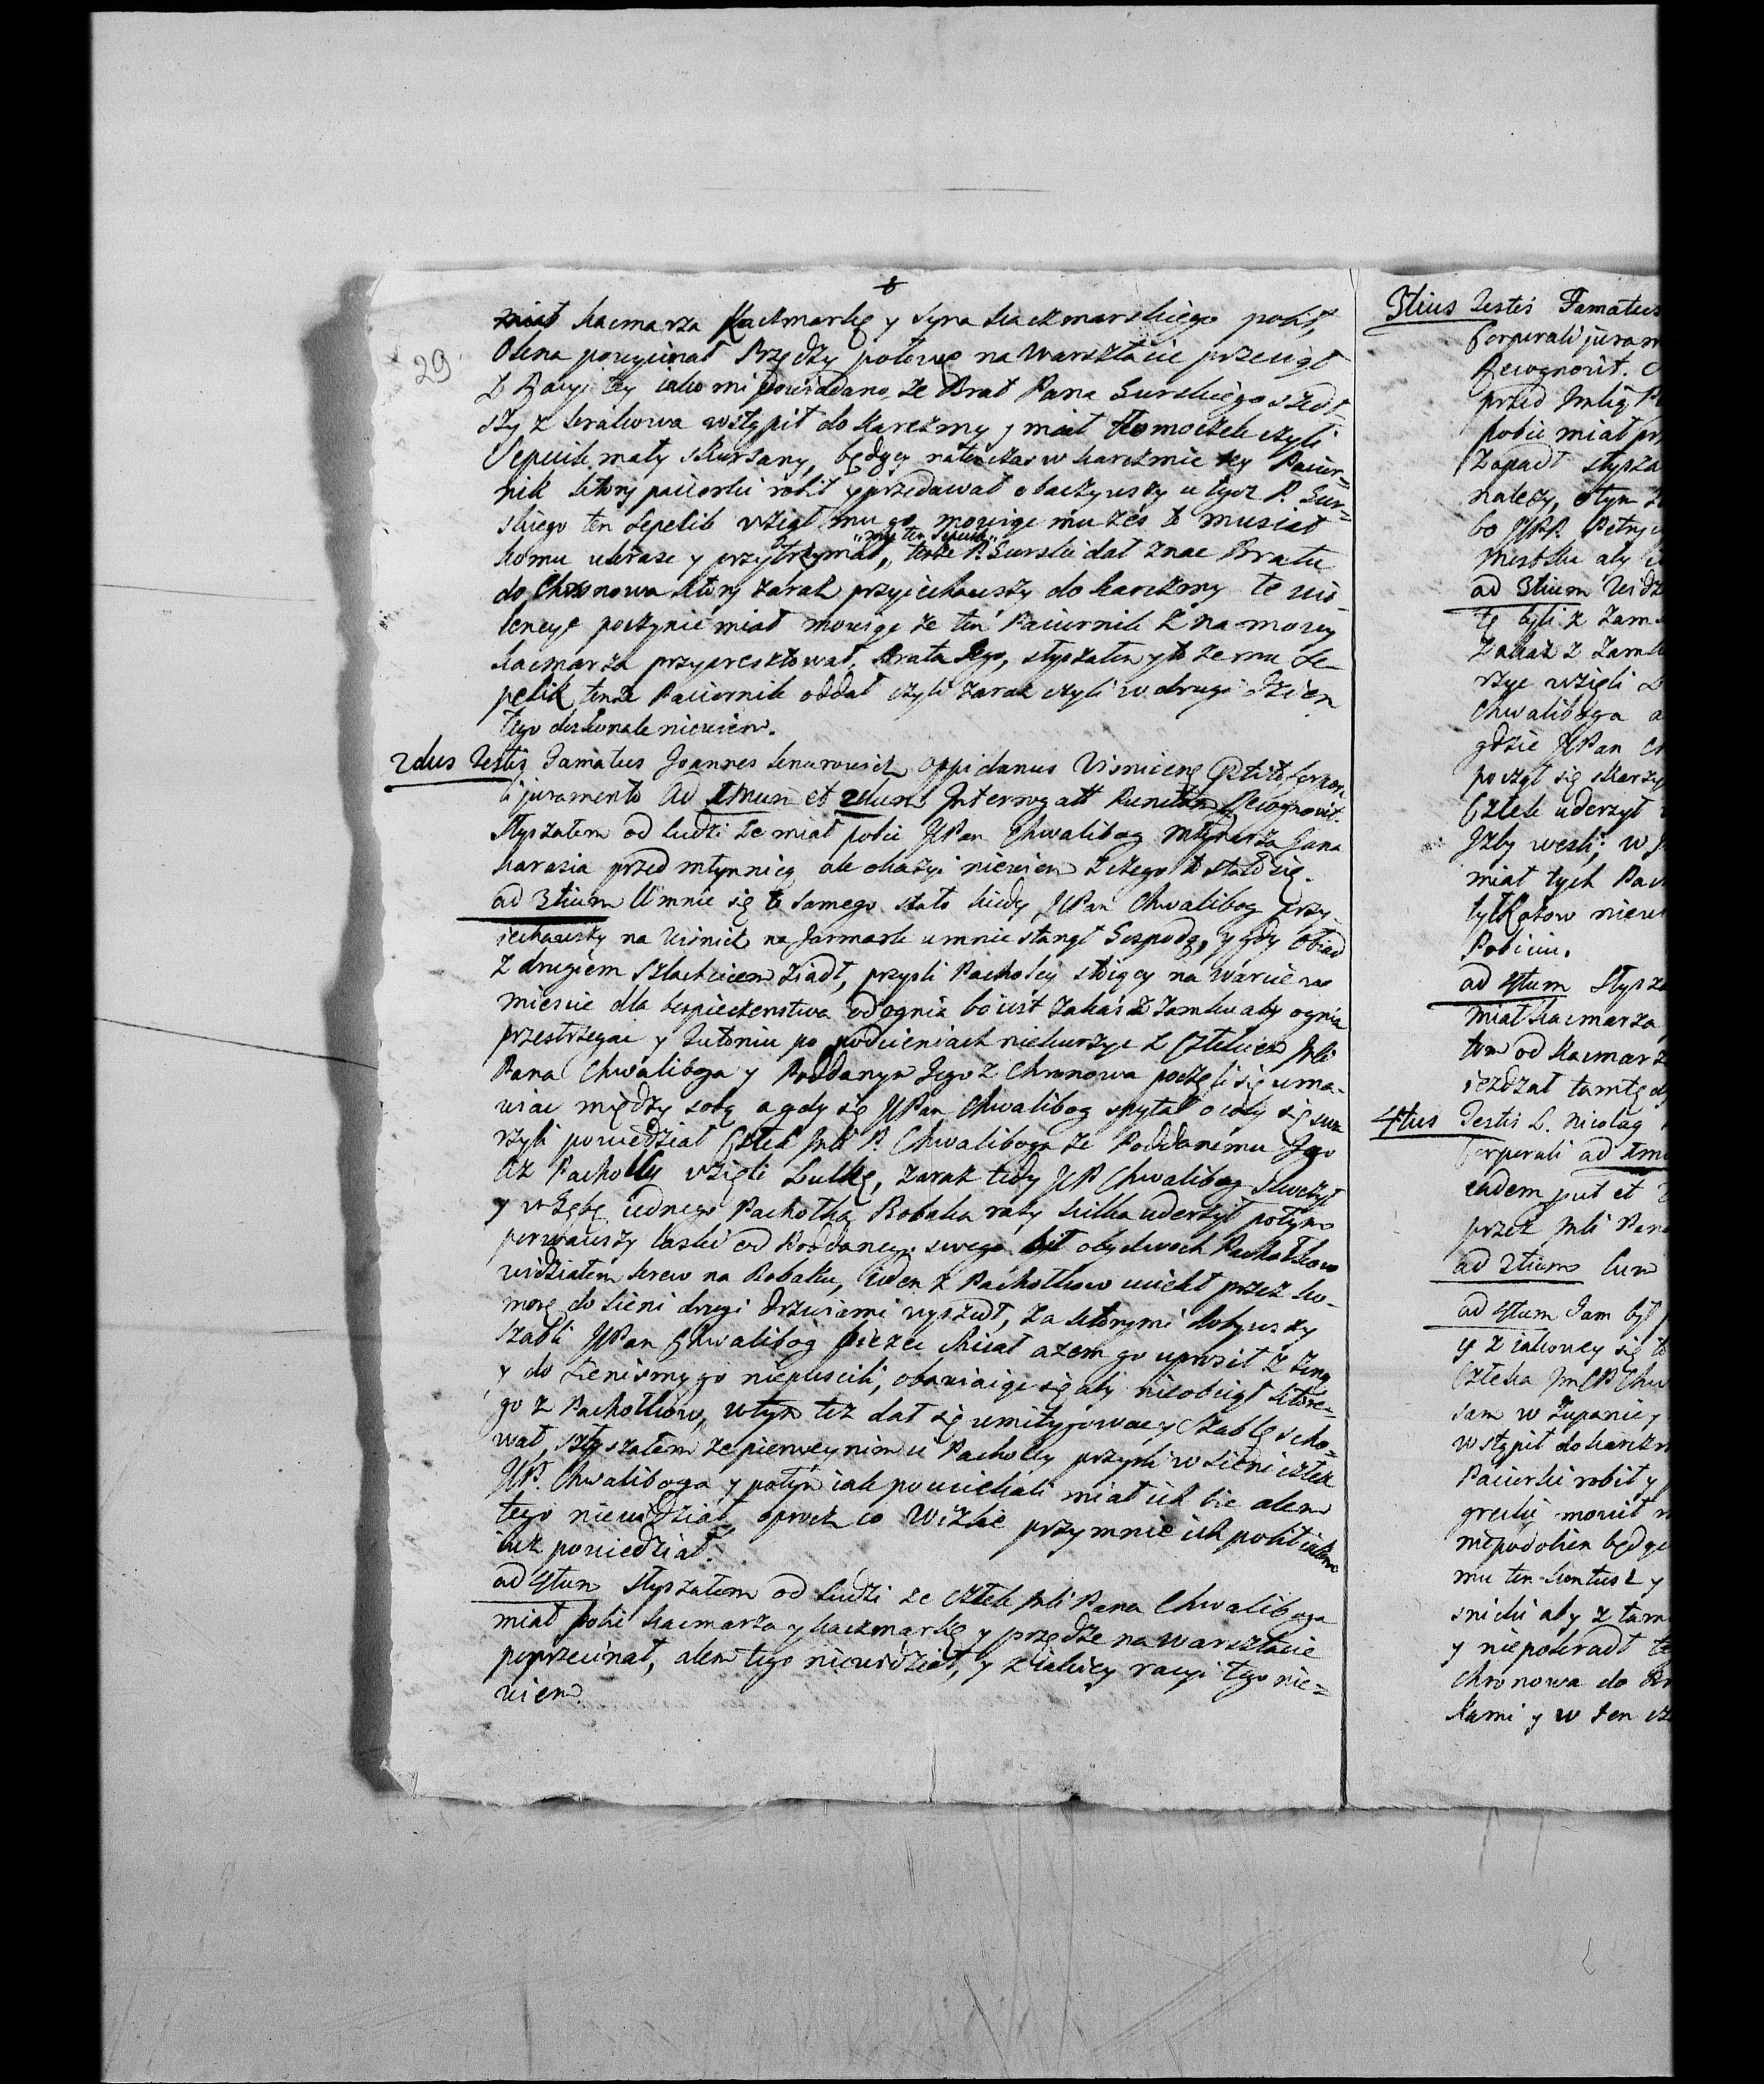 8
29
miał Kacmarza Kaczmarkę y syna Kaczmarskiego pobił,
Okna powycinał Przędzy połowę na Warsztacie przeciął
z Racyi tey iako mi powiadano, że Brat Pana Gurskiego szedł
szy z Krakowa wstąpił do karczmy y miał tłomoczek czyli
Sepecik mały skurzany, będący natenczas w karczmie Pacior=
nik ktory paciorki robił y przedawał obaczywszy u tyoz P. Gur=
skiego ten Sepecik wziął mu go mowiąc mu żeś to musiał
komu ukraść y przytrzymał, „mu ten Sepecik„ tenże P. Gurski dał znac Bratu
do Chronowa ktory zaraz przyiechawszy do karczmy te vio-
lencye poczynić miał mowiąc że ten Paciornik z namowy
kacmarza przyaresztował Brata Jego, słyszałem y to że mu Se-
pecik tenże Paciornik oddał czyli zaraz czyli w drugi dzien
tego doskonale niewiem.
2dus Testis Famatus Joannes oppidanus Visnicensis
li juramento Ad 1mum et 2dum Interrogatt Punctum Recognovit.
Słyszałem od ludzi że miał pobić JPan Chwalibog Młynarza Jana
Karasia przed młynnicą ale okazyi niewiem z czego to stało się.
ad 3tium U mnie się to samego stało kiedy JPan Chwalibog przy-
iechawszy na Wisnicz na Jarmark u mnie stanął Gospodą, y gdy obiad
z drugiem szlachcicem ziadł, przyszli Pachołcy stoiący na warcie na
miescie dla bespieczenstwa od ognia bo iest zakaz z Zamku aby ognia
przestrzegać y Tutoniu po podcieniach niekurzyc z Człekiem Jmći
Pana Chwaliboga y Poddanym Jego z Chronowa poczęli się uma-
wiac między sobą a gdy się JPan Chwalibog spytał o coby się swa
rzyli powiedział Człek Jmći P. Chwaliboga że Poddanemu Jego
Ci Pachołcy wzięli Lulkę, zaraz tedy JP Chwalibog skoczył
y w Gębę iednego Pachołka Robaka razy kilka uderzył potym
porwawszy laski od Poddanego swego bił obydwoch Pachołkow
widziałem krew na Robaku, ieden z Pachołkow uciekł przez ko-
morę do sieni drugi drzwiami wyszedł, za ktorymi dobywszy
szabli JPan Chwalibog bieżec chciał ażem go uprosił z żoną
y do sieni smy go niepuscili, obawiaiąc się aby nieobciął ktore-
go z Pachołkow, wtym też dał się umitygować y Szablę scho=
wał, słyszałem że pierwey nim ci Pachołcy przyszli w sieni człek
JP. Chwaliboga y potym iak pouciekali miał ich bic alem
tego niewidział, oprocz co w izbie przy mnie ich pobił iakom
iuż powiedział.
ad 4tum Słyszałem od ludzi że człek Jmći Pana Chwaliboga
miał pobić kacmarza y kaczmarkę y przędze na warsztacie
poprzecinał, alem tego niewidział, y z iakiey racyi tego nie=
wiem.
3tius Testis Famatus
Corporali juram
Recognovit.
przed Jmścią
pobić miał
Zapadł słysza
należy, o tym
bo JPP.
Miesku aby
ad 3tium Widz
tę byli z Zam
Zakaz z Zamk
rzyc wzięli
Chwaliboga a
gdzie JPan C
począł się skarzy
Człek uderzył
Izby weszli, w
miał tych Pach
tylkotow niewi
Pobiciu.
ad 4tum Słysza
miał Kacmarza
tem od Kacmarz
iezdzał tamtędy
4tus Testis L. Nicolaq
Corporali ad 1mum
eadem put et
przez Jmći Pana
ad 3tium Cum
ad 4tum Jam był
y z iakowey się
Człeka JmCP Chw
sam w Żupanie y
wstąpił do karczm
Paciorki robił y
grecki mowił
niepodobien będąc
mu ten kontusz y
snicki aby z tam
y niepokradł
Chronowa do
kami y w ten cz